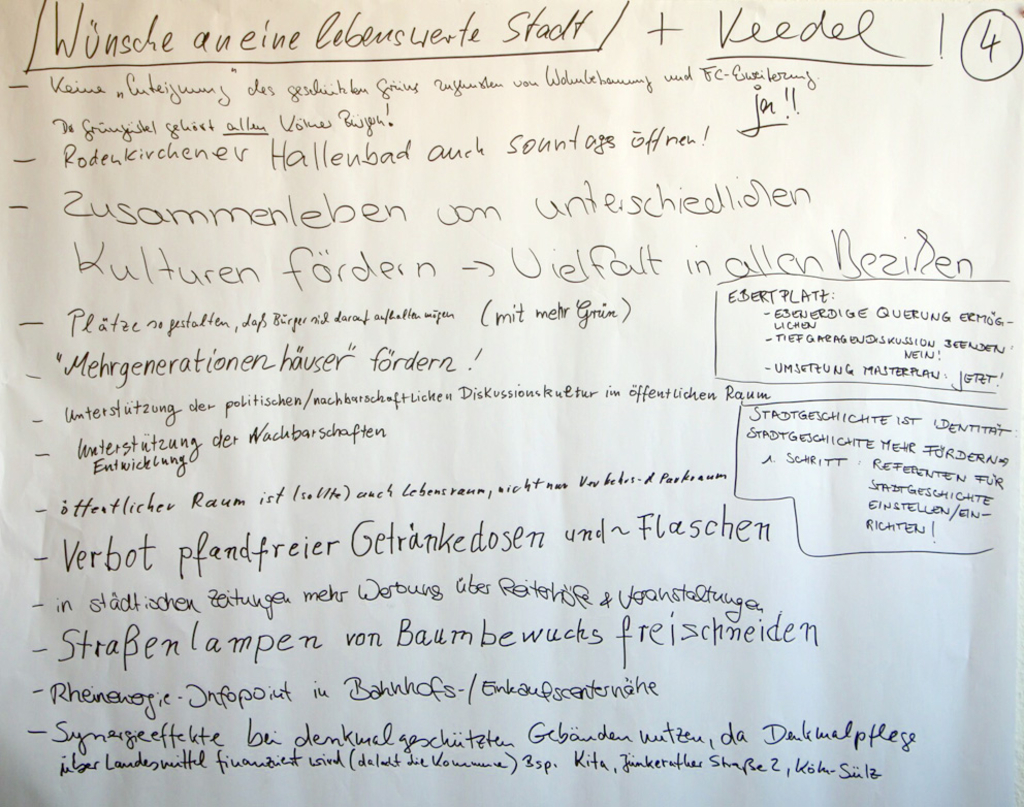 Wünsche an eine lebenswerte Stadt + Veedel! 4
- Keine "Enteignung" des geschützten Grüns zugunsten von Wohnbebauung und FC-Erweiterung.
ja!!
Der Grüngürtel gehört allen Kölner Bürgern!
- Rodenkirchener Hallenbad auch sonntags öffnen!
- Zusammenleben von unterschiedlichen
Kulturen fördern → Vielfalt in allen Bezirken
- Plätze so gestalten, daß Bürger sich darauf aufhalten mögen (mit mehr Grün)
- "Mehrgenerationenhäuser" fördern!
- Unterstützung der politischen/nachbarschaftlichen Diskussionskultur im öffentlichen Raum
- Unterstützung der Nachbarschaften
Entwicklung
- öffentlicher Raum ist (sollte) auch Lebensraum, nicht nur Verkehrs- & Parkraum
- Verbot pfandfreier Getränkedosen und ~ Flaschen
- in städtischen Zeitungen mehr Werbung über Reiterhöfe & Veranstaltungen
- Straßenlampen von Baumbewuchs freischneiden
- Rheinenergie-Infopoint in Bahnhofs-/Einkaufscenternähe
- Synergieeffekte bei denkmalgeschützten Gebäuden nutzen, da Denkmalpflege
über Landesmittel finanziert wird (dalaht die Kommune) Bsp. Kita, Jünkerather Straße 2, Köln-Sülz
EBERTPLATZ:
- EBENERDIGE QUERUNG ERMÖG-
LICHEN
- TIEFGARAGENDISKUSSION BEENDEN
NEIN!
- UMSETZUNG MASTERPLAN: JETZT!
STADTGESCHICHTE IST IDENTITÄT
STADTGESCHICHTE MEHR FÖRDERN →
1. SCHRITT: REFERENTEN FÜR
STADTGESCHICHTE
EINSTELLEN/EIN-
RICHTEN!